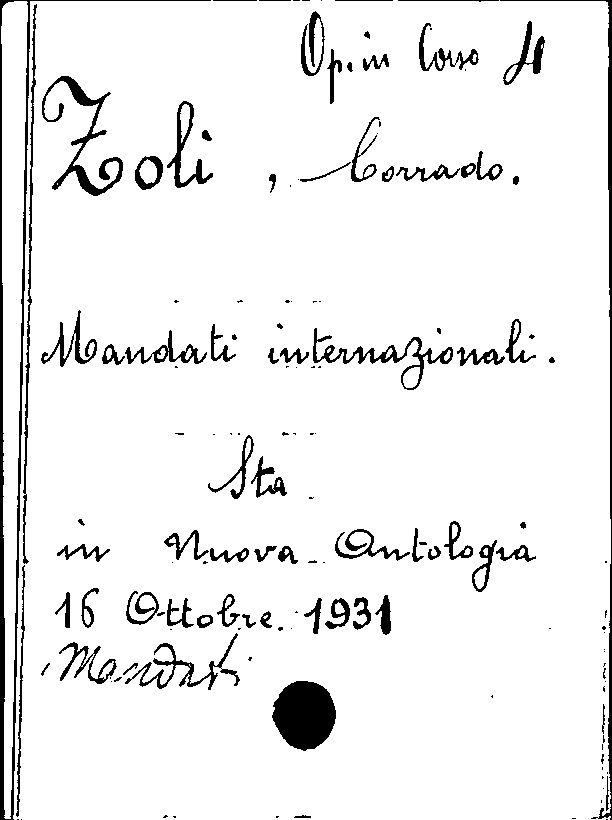 Op. in Corso 4
Zoli, Corrado.
Mandati internazionali.
Sta
in Nuova Antologia
16 Ottobre. 1931
Mandati